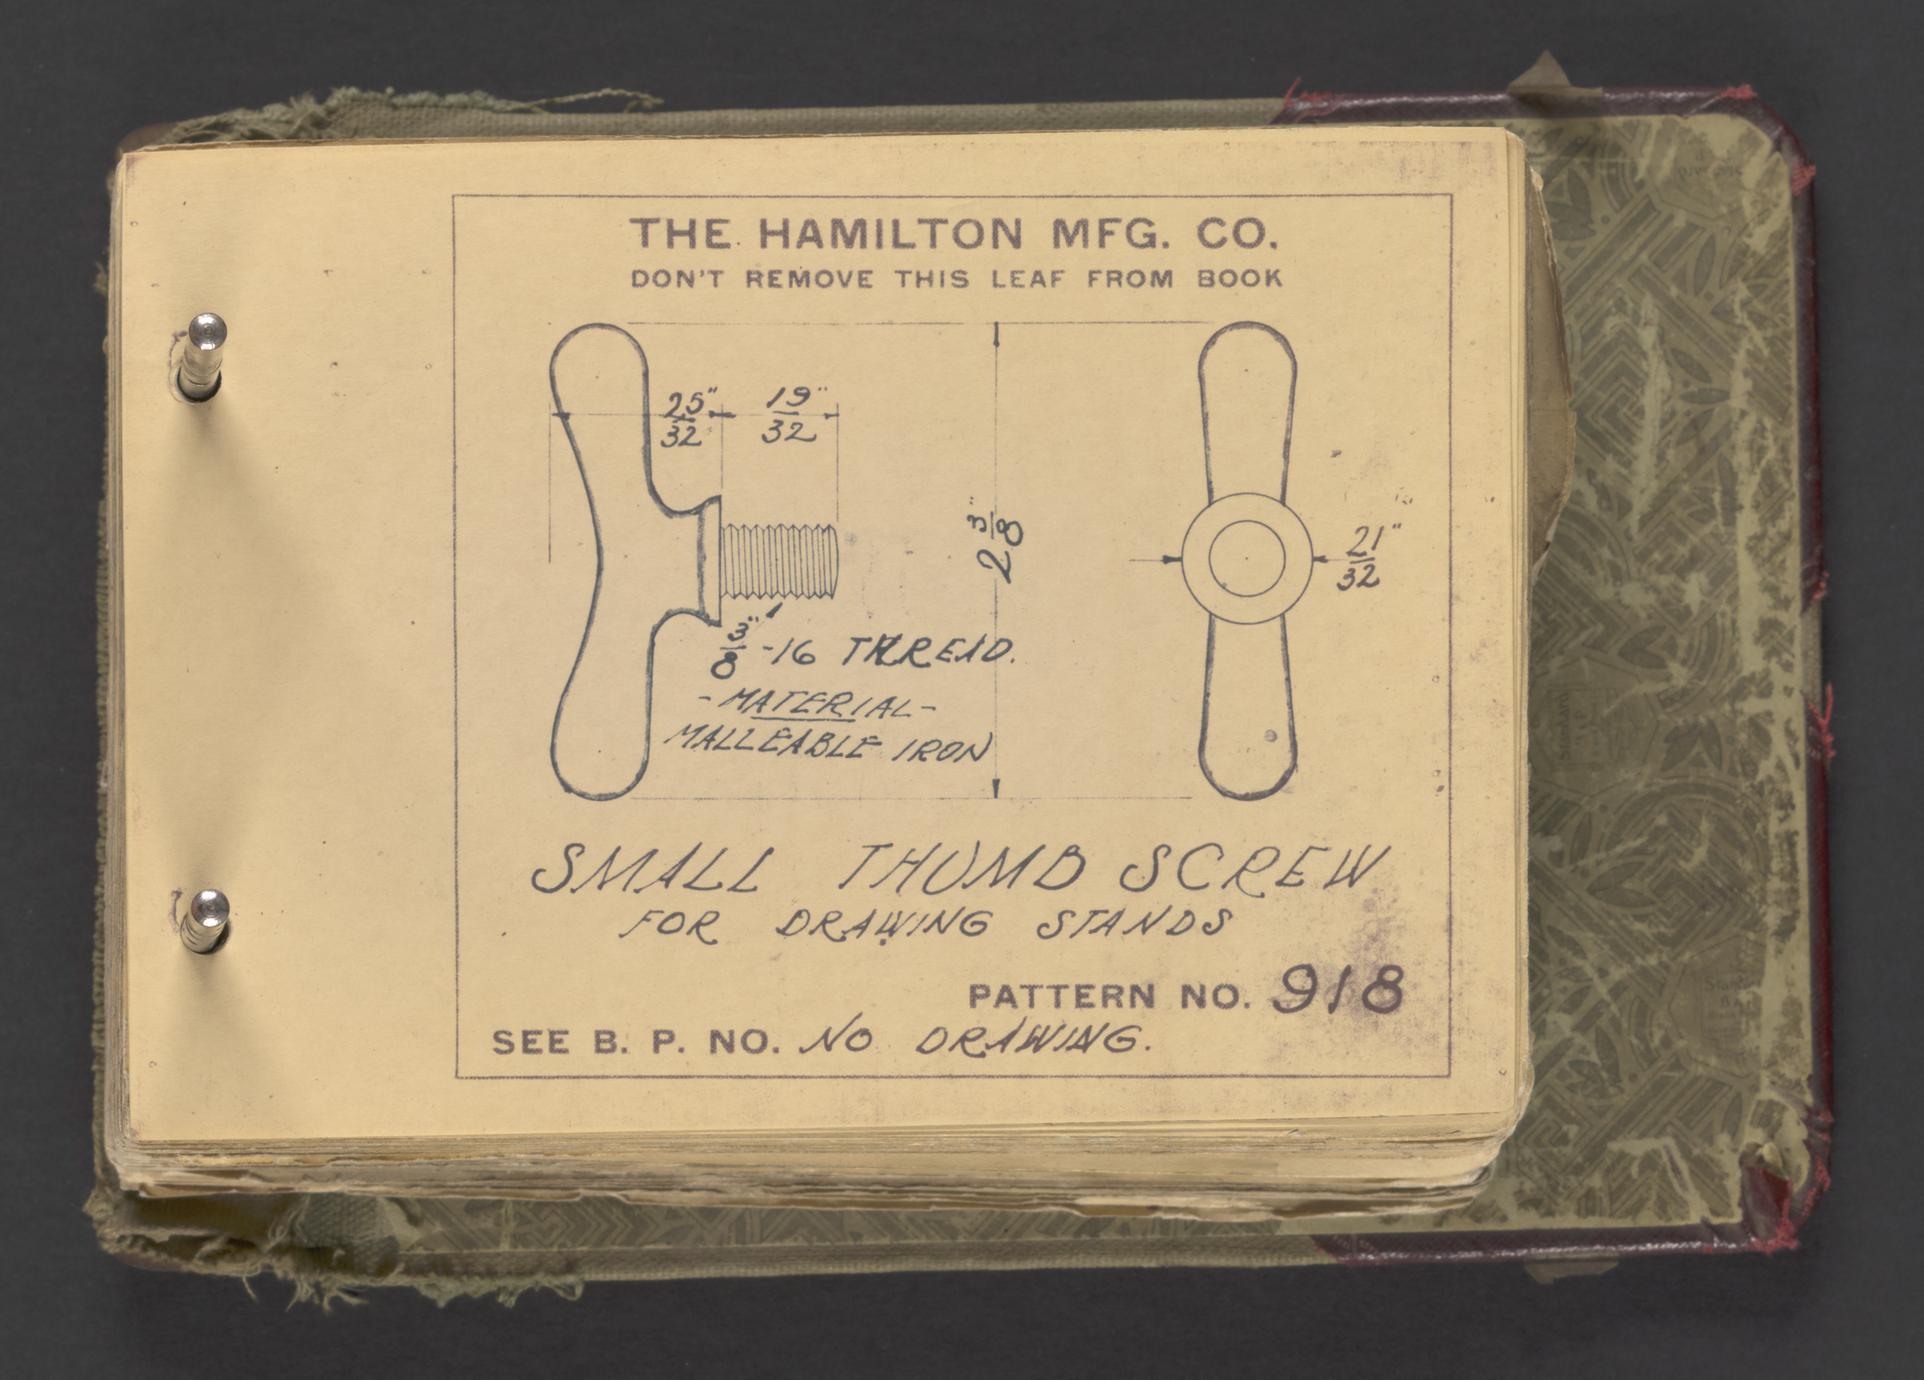 THE HAMILTON MFG. CO.
DON'T REMOVE THIS LEAF FROM BOOK
25"/32 19"/32
2 3"/8
21"/32
3"/8 -16 THREAD.
-MATERIAL-
MALLEABLE IRON
SMALL THUMB SCREW
FOR DRAWING STANDS
PATTERN NO. 918
SEE B. P. NO. NO DRAWING.